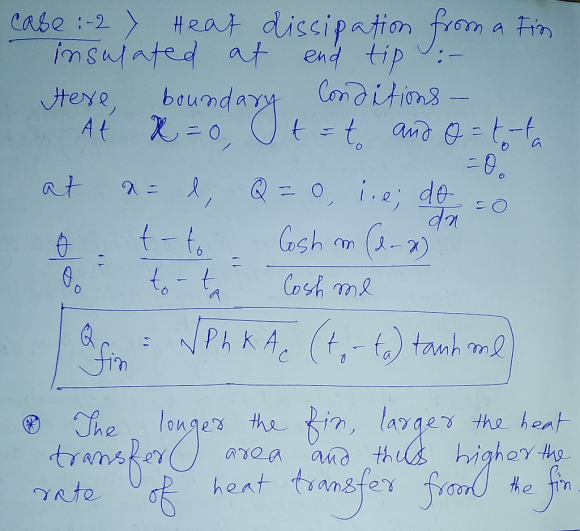 Case :-2 > Heat dissipation from a Fin
insulated at end tip :-
Here, boundary Conditions —
At x = 0, t = t₀ and θ = t₀-tₐ
= θ₀
at x = l, Q = 0, i.e; dθ/dx = 0
θ/θ₀ = (t - t₀)/(t₀ - tₐ) = Cosh m (l-x)/Cosh ml
Q fin = √PhKA꜀ (t₀ - tₐ) tanh ml
⊛ The longer the fin, larger the heat
transfer area and thus higher the
rate of heat transfer from the fin.